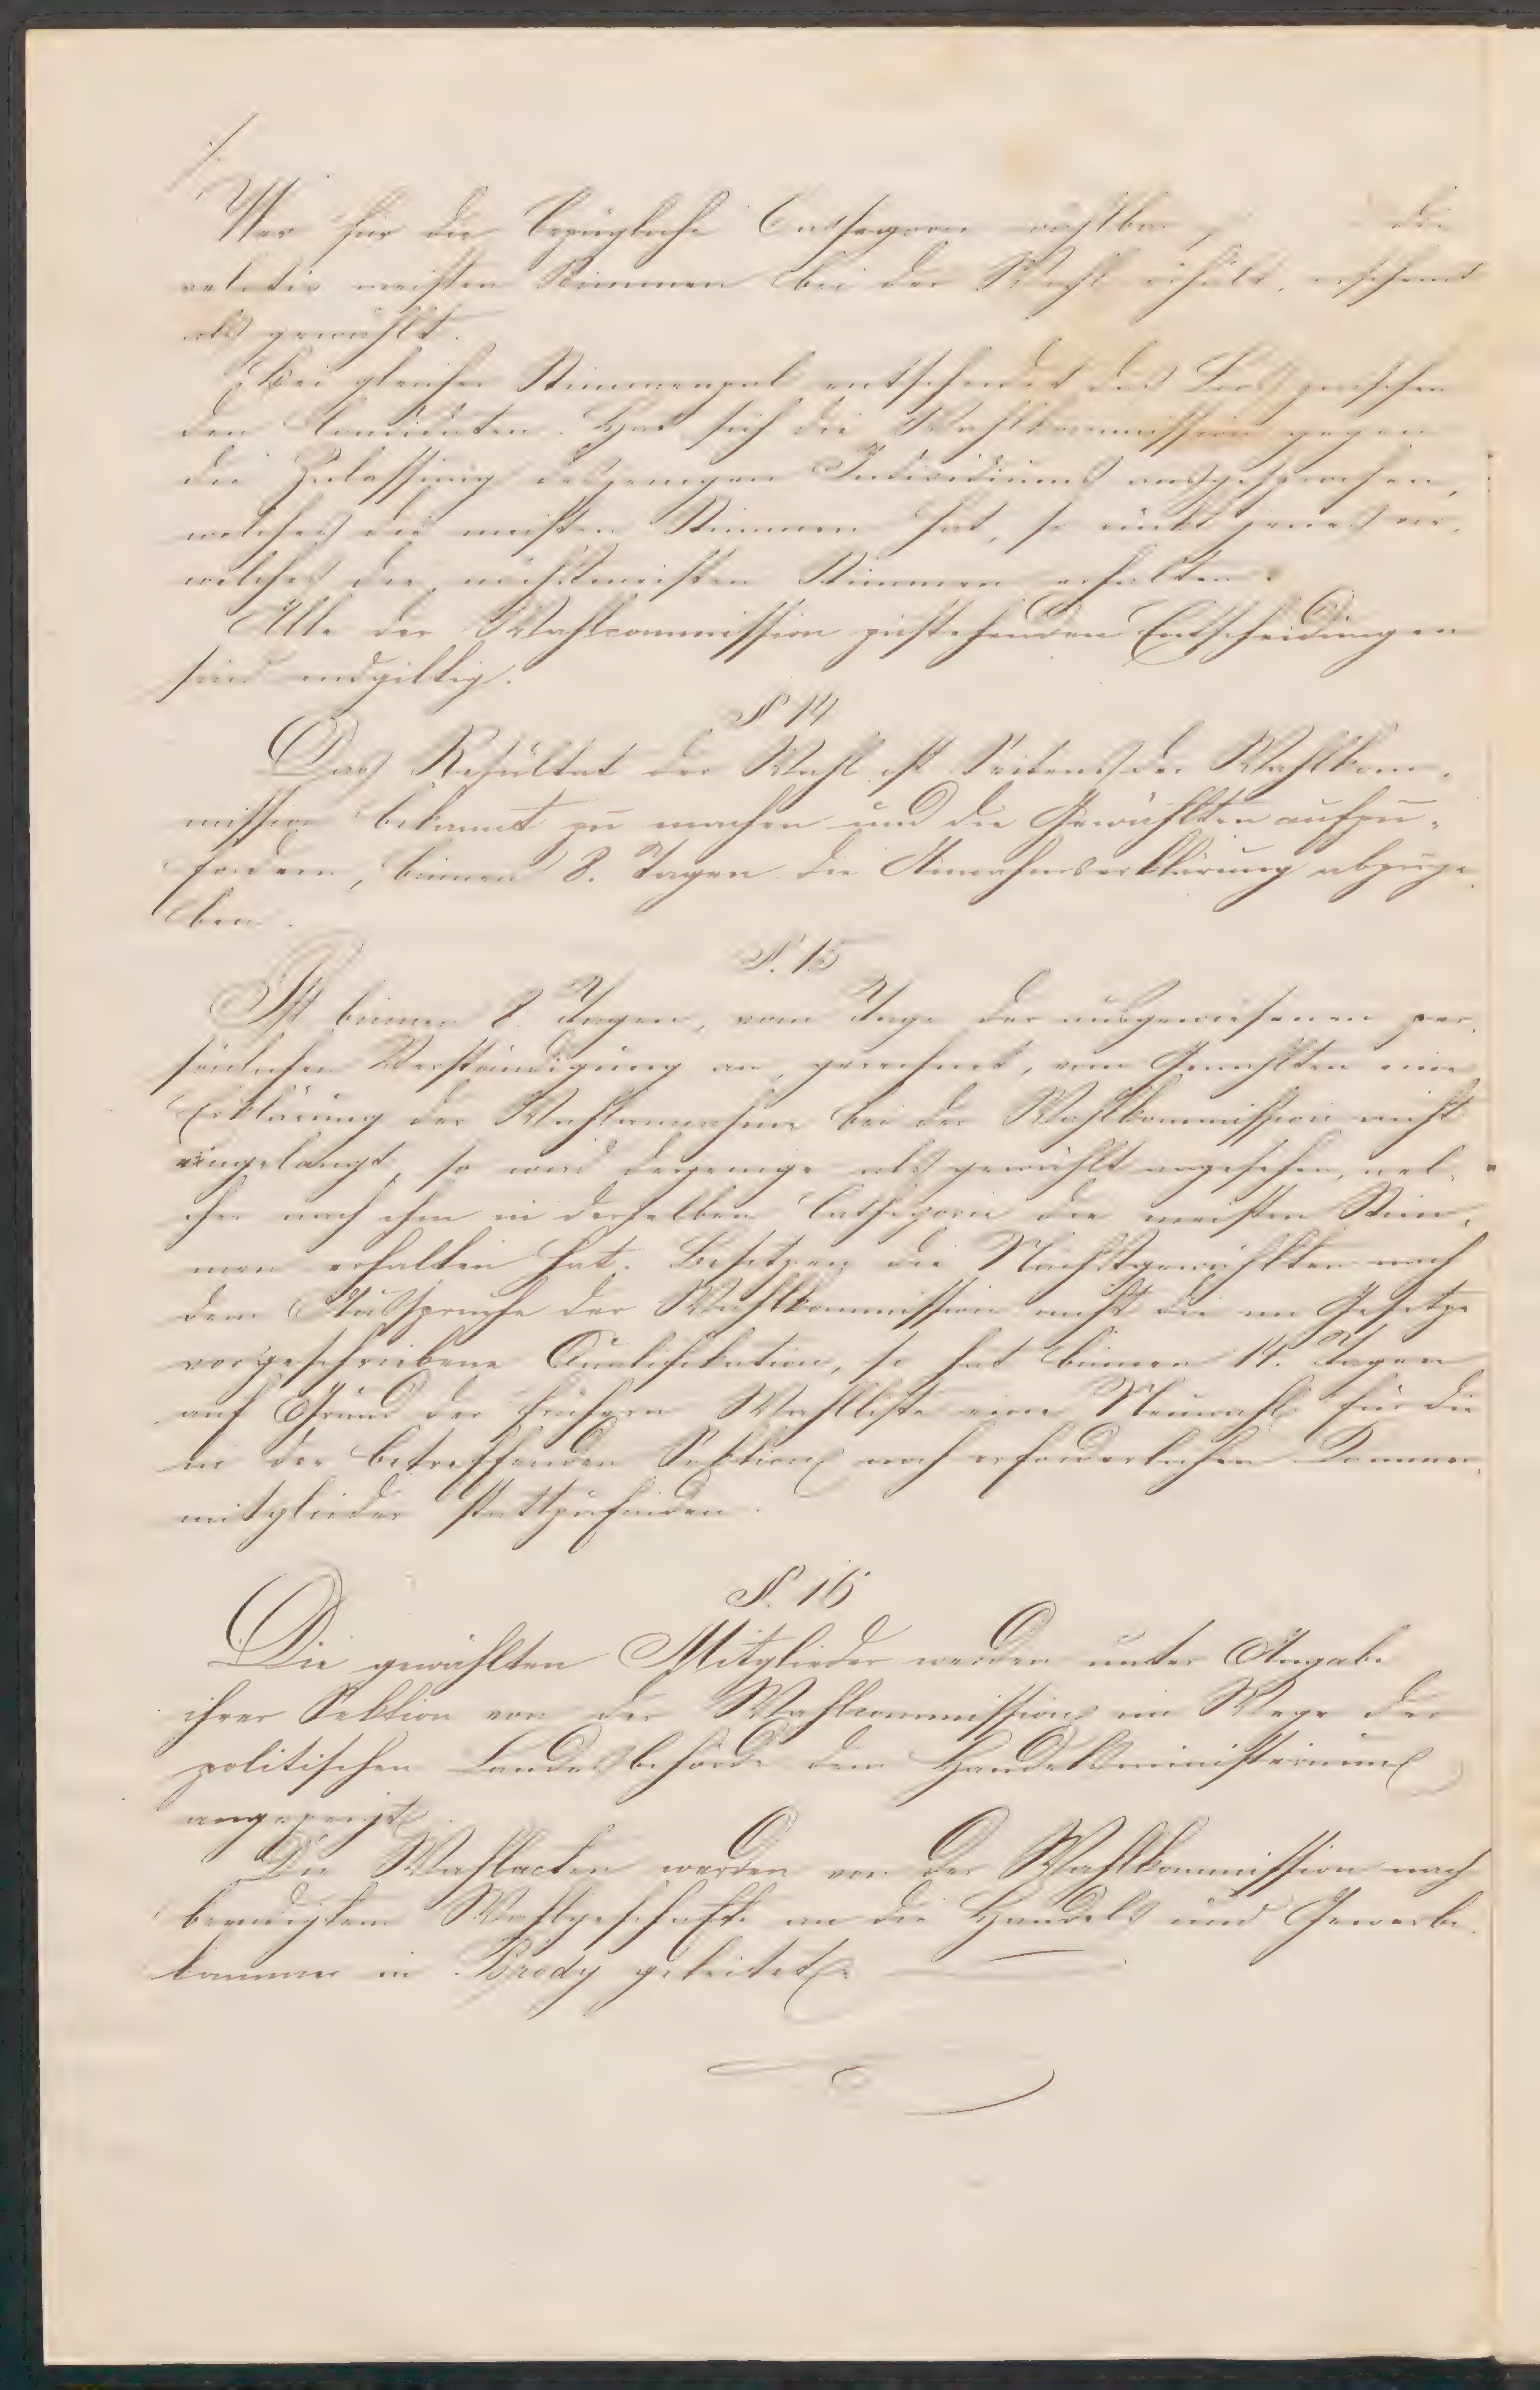 Wer für die bezügliche Cathegorie wählbar, die
relativ meisten Stimmen bei der Wahl erhält, erscheint
als gewählt.
Bei gleicher Stimmenzal entscheidet das Loos zwischen
den Candidaten. Hat sich die Wahlkommission gegen
die Zulassung desjenigen Individuums ausgesprochen,
welches die meisten Stimmen hat, so rückt jenes vor,
welches die nächstmeisten Stimmen erhalten.
Alle der Wahlcommission zustehenden Entscheidungen
sind endgiltig.
§ 14
Das Resultat der Wahl ist Seitens der Wahlkom-
mission bekannt zu machen und die Gewählten aufzu-
fordern, binnen 8. Tagen die Annahmserklärung abzuge-
ben.
§. 15
Ist binnen 8 Tagen, vom Tage der ausgewiesenen per-
sönlichen Verständigung an, gerechnet, vom Gewählten eine
Erklärung der Wahlannahme bei der Wahlkommission nicht
eingelangt, so wird derjenige als gewählt angesehen, wel-
cher nach ihm in derselben Cathegorie die meisten Stim-
men erhalten hat. Besitzen die Nächstgewählten nach
dem Ausspruche der Wahlkommission nicht die im Gesetze
vorgeschriebene Qualifikation, so hat binnen 14. Tagen
auf Grund der frühern Wahlliste eine Neuwahl für die
in der betreffenden Sektion noch erforderlichen Kammer-
mitglieder stattzufinden.
§. 16
Die gewählten Mitglieder werden unter Angabe
ihrer Sektion von der Wahlcommission im Wege der
politischen Landesbehörde dem Handelsministerium
angezeigt.
Die Wahlacten werden von der Wahlkommission nach
beendigtem Wahlgeschäfte an die Handels und Gewerbe-
kammer in Brody geleitet.